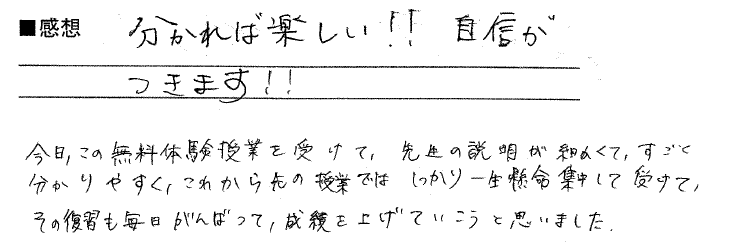 ■感想 分かれば楽しい!! 自信が
つきます!!
今日,この無料体験授業を受けて,先生の説明が細かくて,すごく
分かりやすく,これから先の授業ではしっかり一生懸命集中して受けて,
その復習も毎日がんばって,成績を上げていこうと思いました.